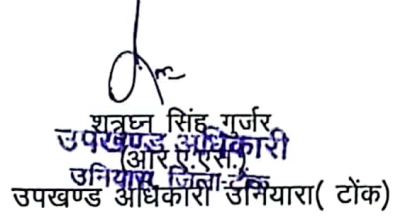 शत्रुघ्न सिंह गुर्जर
उपखण्ड अधिकारी
(आर.ए.एस.)
उनियारा, जिला-टोंक
उपखण्ड अधिकारी उनियारा( टोंक)